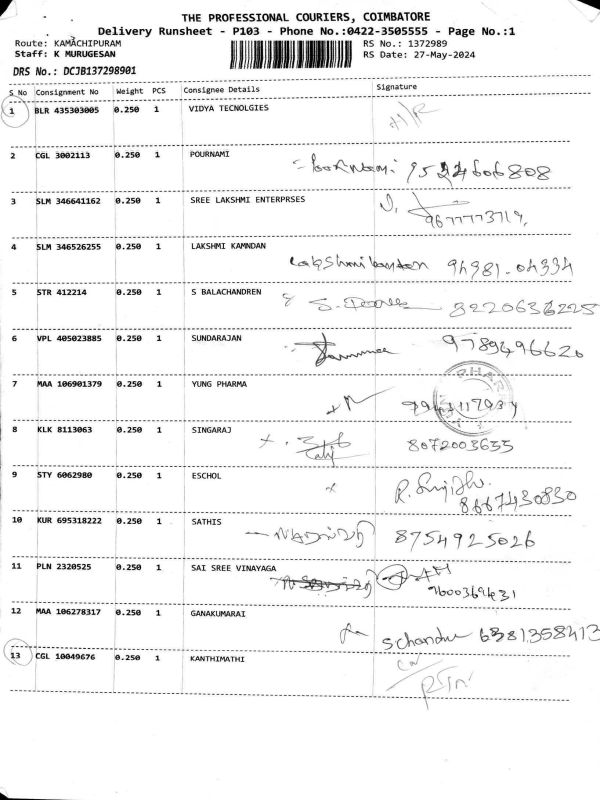 THE PROFESSIONAL COURIERS, COIMBATORE
Delivery Runsheet - P103 - Phone No.:0422-3505555 - Page No.:1
Route: KAMACHIPURAM RS No.: 1372989
Staff: K MURUGESAN RS Date: 27-May-2024
DRS No.: DCJB137298901
S_No Consignment No Weight PCS Consignee Details Signature
1 BLR 435303005 0.250 1 VIDYA TECNOLGIES
2 CGL 3002113 0.250 1 POURNAMI
3 SLM 346641162 0.250 1 SREE LAKSHMI ENTERPRSES
9677773719
4 SLM 346526255 0.250 1 LAKSHMI KAMNDAN
94981-04334
5 STR 412214 0.250 1 S BALACHANDREN
6 VPL 405023885 0.250 1 SUNDARAJAN
9789496620
7 MAA 106901379 0.250 1 YUNG PHARMA
8 KLK 8113063 0.250 1 SINGARAJ
8072003655
9 STY 6062980 0.250 1 ESCHOL
8667430830
10 KUR 695318222 0.250 1 SATHIS
8754925026
11 PLN 2320525 0.250 1 SAI SREE VINAYAGA
9600369431
12 MAA 106278317 0.250 1 GANAKUMARAI
6381358413
13 CGL 10049676 0.250 1 KANTHIMATHI